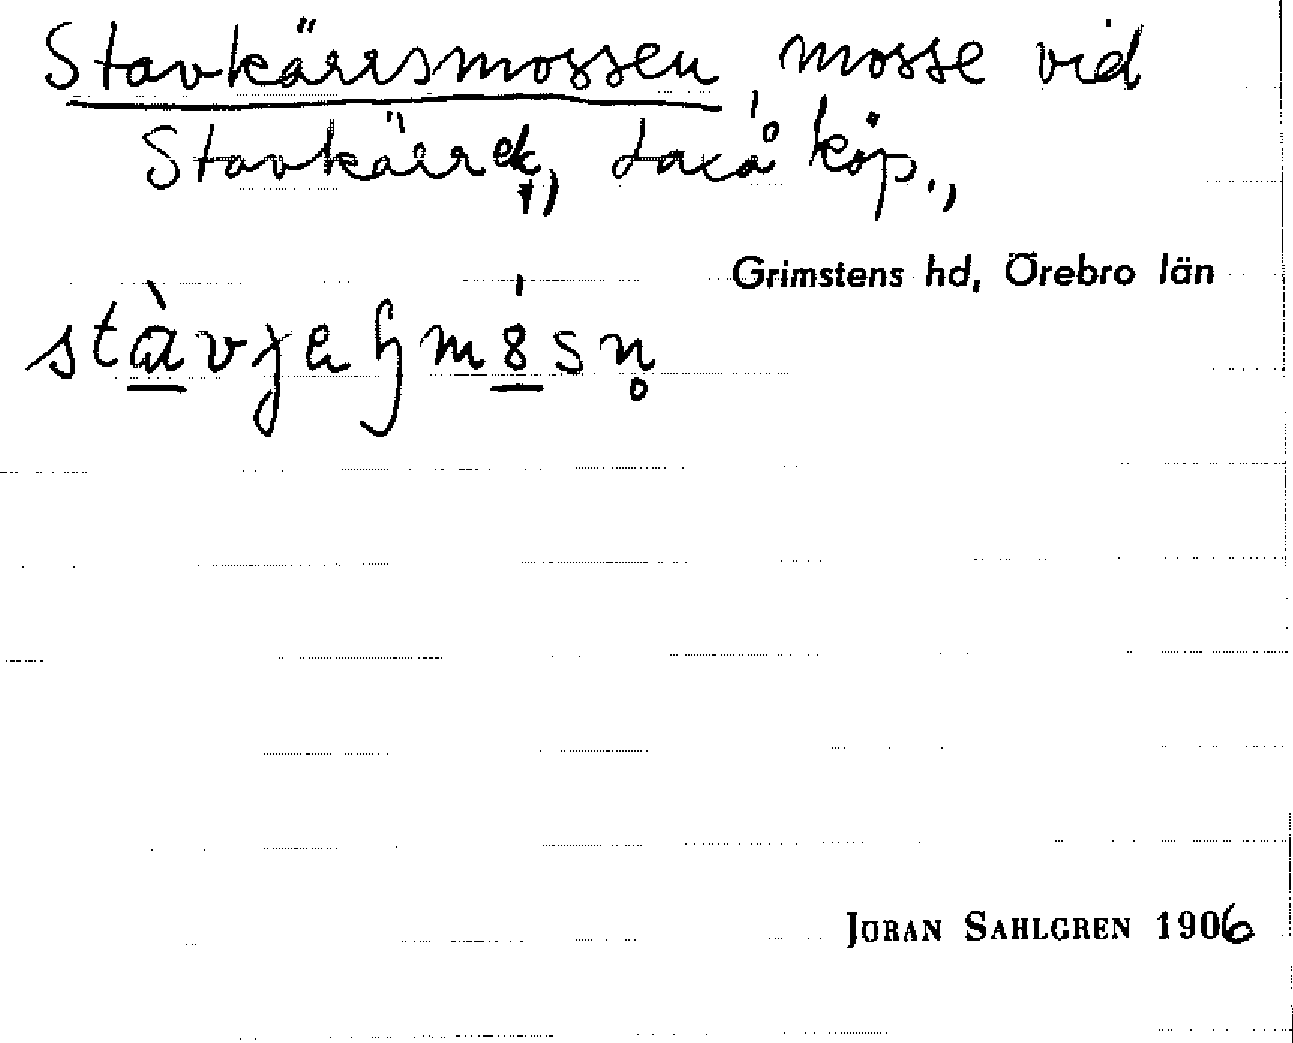 Stavkärrsmossen, mosse vid
Stavkärret, Laxå köp.,
Grimstens hd, Örebro län
JÖRAN SAHLGREN 1906